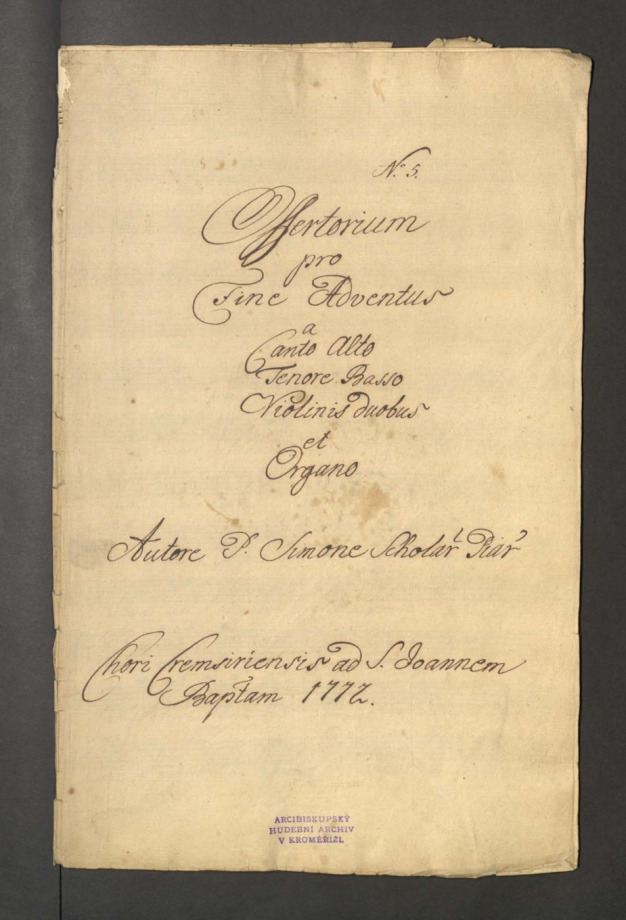 No. 5.
Offertorium
pro
Fine Adventus
a
Canto Alto
Tenore Basso
Violinis duobus
et
Organo
Autore P. Simone Scholar. Piar.
Chori Cremsiriensis ad S. Joannem
Baptam 1772.
ARCIBISKUPSKÝ
HUDEBNÍ ARCHIV
V KROMĚŘÍŽI.